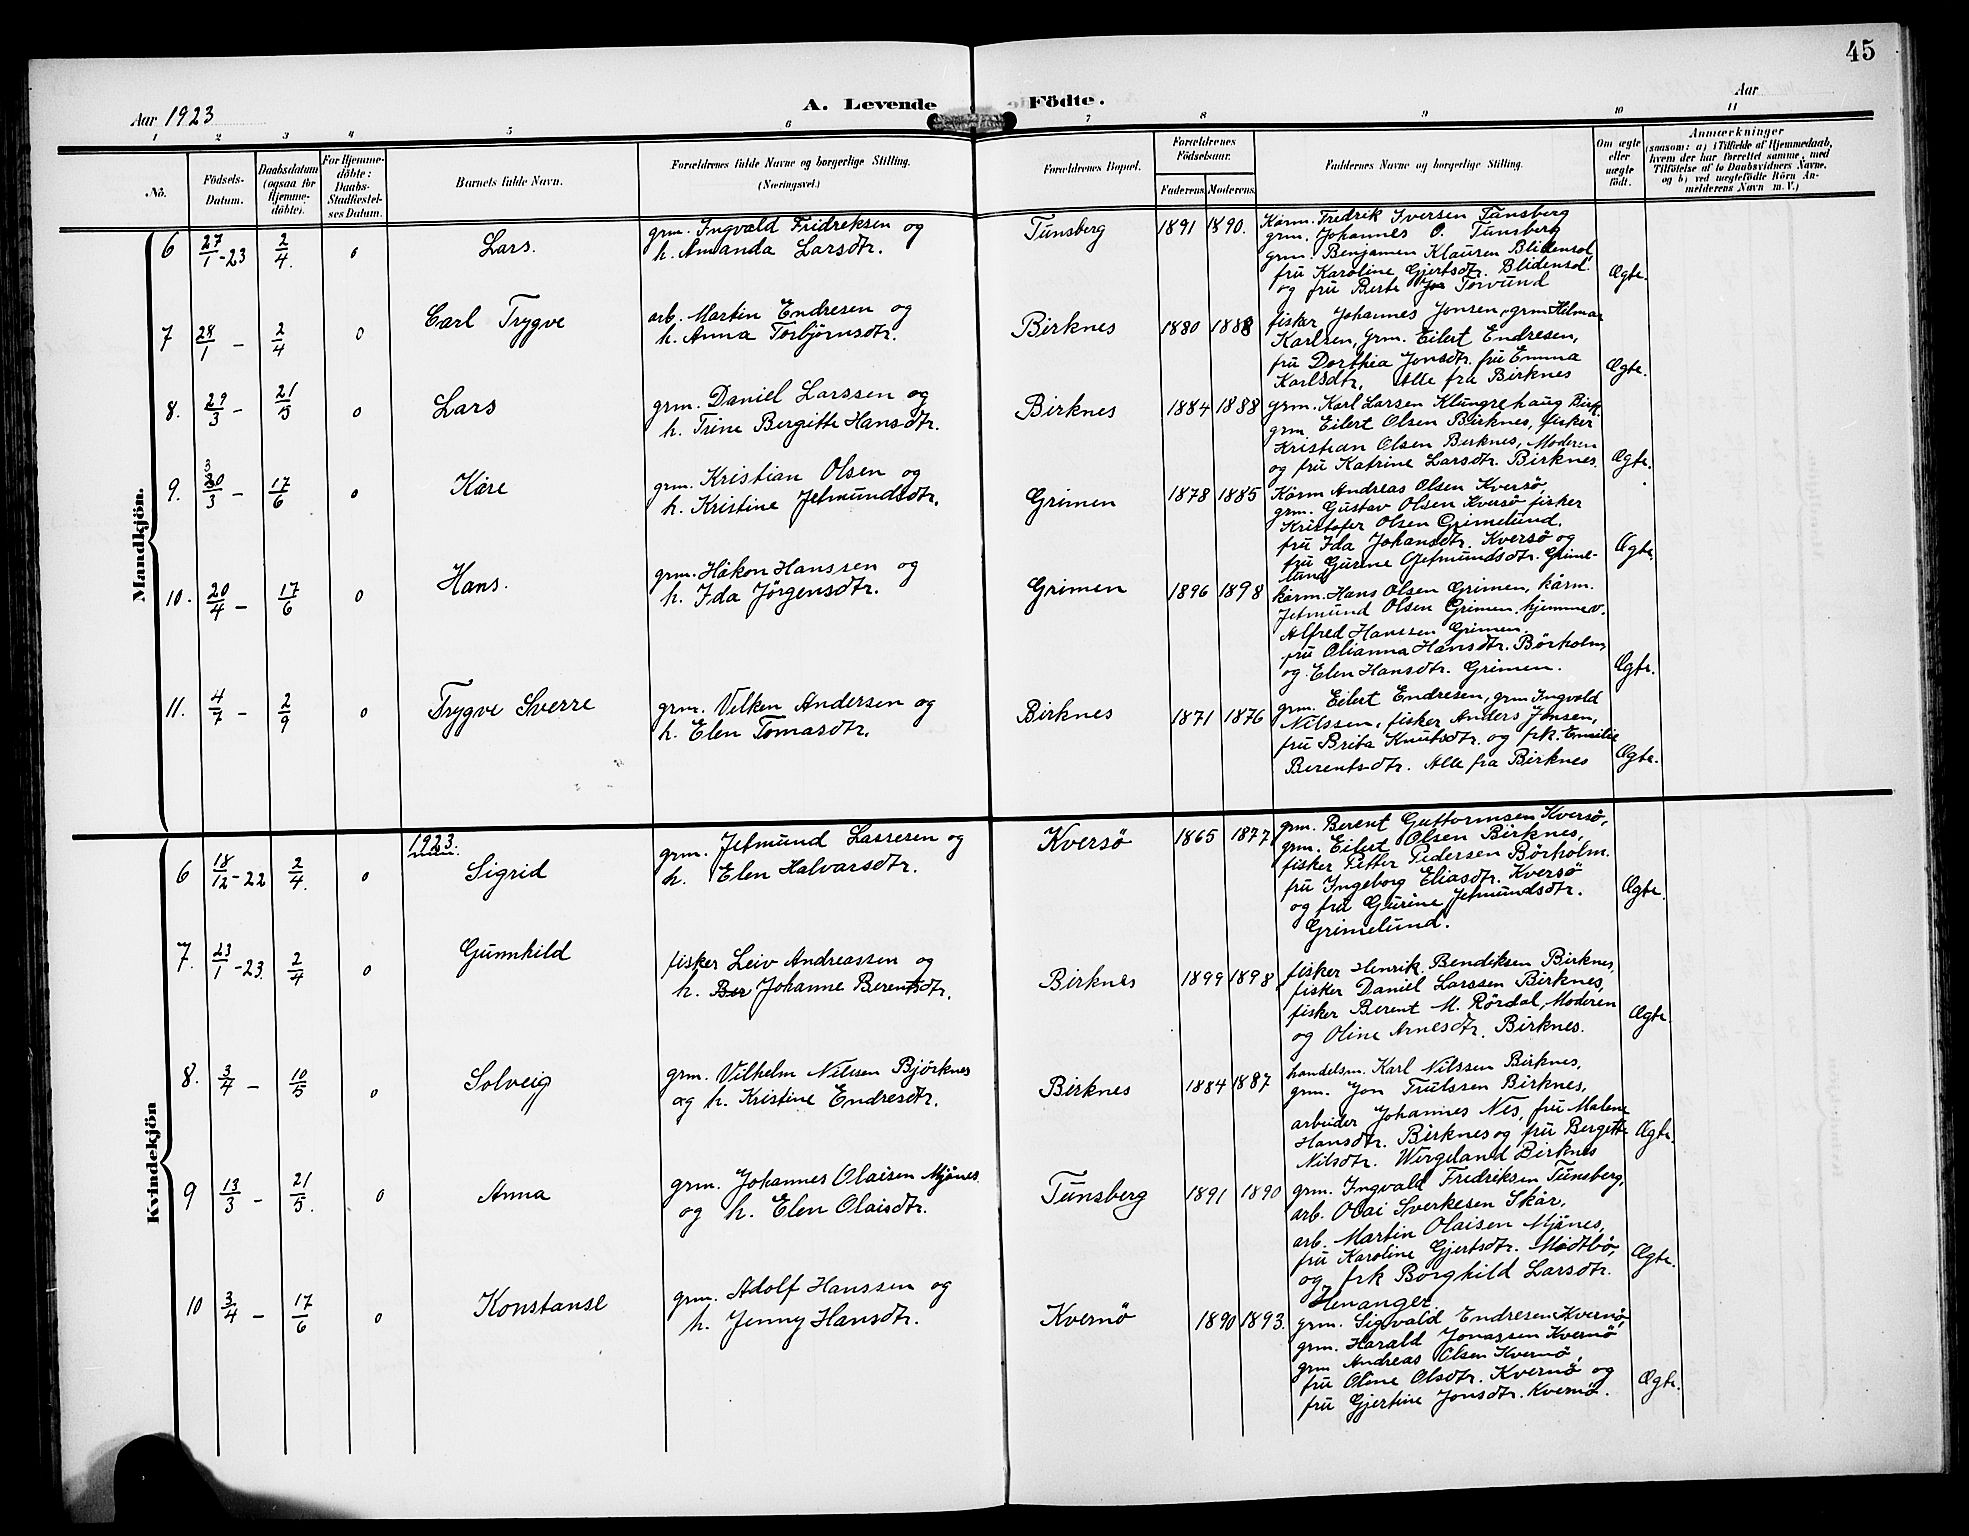 45
Aar 1923
A. Levende Födte.
Aar
1 2 3 4 5 6 7 8 9 10 11
No.
Födsels-
Datum.
Daabsdatum
(ogsaa for
Hjemme-
döbte).
For Hjemme-
döbte:
Daabs-
Stadfæstel-
ses Datum.
Barnets fulde Navn.
Forældrenes fulde Navne og borgerlige Stilling.
(Næringsvei.)
Forældrenes Bopæl.
Forældrenes
Födselsaar.
Faderens. Moderens.
Faddernes Navne og borgerlige Stilling.
Om ægte
eller
uægte
födt.
Anmærkninger
(saasom: a) i Tilfælde af Hjemmedaab,
hvem der har forrettet samme, med
Tilföielse af to Daabsvidners Navne,
og b) ved uægtefödte Börn An-
melderens Navn m. V.)
Mandkjön.
6 27/1 -23 2/4. 0 Lars.
grm. Ingvald Fridreksen og
h. Amanda Larsdtr.
Tunsberg 1891 1890.
Kårm. Fredrik Iversen Tansberg
grm. Johannes O. Tunsberg
grm. Benjamen Klausen Blidensol
fru Karoline Gjertsdtr. Blidensol
og fru Berte Torvund
Ægte.
7 28/1 — 2/4 0 Carl Trygve
arb. Martin Endresen og
h. Anna Torbjørnsdtr.
Birknes 1880 1888
fisker Johannes Jonsen, grm Hilmar
Karlsen, grm. Eilert Endresen,
fru Dorthea Jonsdtr. fru Emma
Karlsdtr. Alle fra Birknes
Ægte.
8. 29/3 — 21/5 0 Lars
grm. Daniel Larssen og
h. Trine Bergitte Hansdtr.
Birknes 1884 1888
grm. Karl Larsen Klungrehaug Birk.
grm Eilert Olsen Birknes, fisker
Kristian Olsen Birknes, Moderen
og fru Katrine Larsdtr. Birknes.
Ægte.
9. 30/3 — 17/6 0 Kåre
grm. Kristian Olsen og
h. Kristine Jetmundsdtr.
Grimen 1878 1885
Kårm Andreas Olsen Kversø
grm. Gustav Olsen Kversø fisker
Kristofer Olsen Grimelund.
fru Ida Johansdtr. Kversø og
fru Gurine Jetmundsdtr. Grime-
lund
Ægte.
10. 20/4 — 17/6 0 Hans.
grm. Håkon Hanssen og
h. Ida Jörgensdtr.
Grimen 1896 1898
kårm. Hans Olsen Grimen, kårm.
Jetmund Olsen Grimen. hjemmev.
Alfred Hanssen Grimen.
fru Olianna Hansdtr. Börholm,
og Elen Hansdtr. Grimen.
Ægte.
11. 4/7 — 2/9 0 Trygve Sverre
grm. Vilken Andersen og
h. Elen Tomasdtr.
Birknes 1871 1876
grm. Eilert Endresen, grm Ingvald
Nilssen, fisker Anders Jonsen,
fru Brita Knutsdtr. og frk. Emilie
Berentsdtr. Alle fra Birknes
Ægte.
Kvindekjön
1923.
6 18/12 -22 2/4. 0 Sigrid
grm. Jetmund Lassesen og
h. Elen Halvarsdtr.
Kversö 1865 1877
grm. Berent Guttormsen Kversö,
grm. Eilert Olsen Birknes,
fisker Petter Pedersen Börholm.
fru Ingeborg Eliasdtr. Kversö
og fru Gurine Jetmundsdtr.
Grimelund.
Ægte.
7. 23/1 -23. 2/4 0 Gunnhild
fisker Leiv Andreassen og
h. Ber Johanne Berentsdtr.
Birknes 1899 1898
fisker Henrik Bendiksen Birknes,
fisker Daniel Larssen Birknes,
fisker Berent M. Rördal, Moderen
og Oline Arnesdtr. Birknes.
Ægte.
8. 3/4 — 10/5 0 Solveig
grm. Vilhelm Nilssen Bjørknes
og h. Kristine Endresdtr.
Birknes 1884 1887
handelsm. Karl Nilssen Birknes,
grm. Jon Trulssen Birknes,
arbeider Johannes Nes, fru Malene
Hansdtr. Birknes og fru Bergitte
Nilsdtr. Wergeland Birknes
Ægte.
9 13/3 — 21/5. 0 Anna
grm. Johannes Olaisen Mjånes
og h. Elen Olaisdtr.
Tunsberg 1891 1890
grm. Ingvald Fredriksen Tunsberg,
arb. Olai Sverkesen Skår,
arb. Martin Olaisen Mjånes,
fru Karoline Gjertsdtr. Mødtbö,
og frk Borghild Larsdtr.
Henanger
Ægte.
10 3/4 — 17/6 0 Konstanse
grm. Adolf Hanssen og
h. Jenny Hansdtr.
Kvernö 1890 1893.
grm. Sigvald Endresen Kvernö,
grm. Harald Jonassen Kvernö
grm Andreas Olsen Kvernö,
fru Oline Olsdtr. Kvernö og
fru Gjertine Jonsdtr. Kvernö.
Ægte.